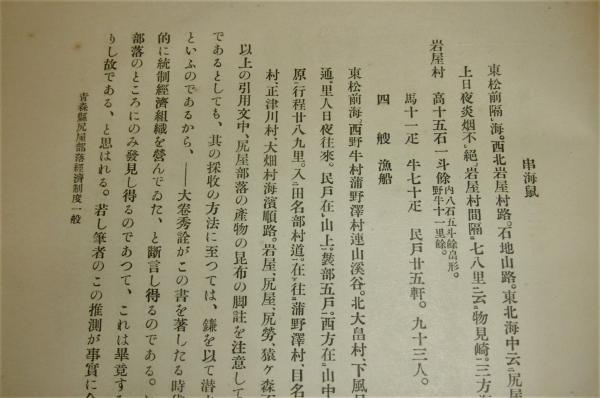 串海鼠
東松前隔海。西北岩屋村路。石地山路。東北海中云尻屋
上日夜炎烟不絶。岩屋村間隔七八里、云物見崎。三方海
岩屋村　高十五石一斗餘内八石五斗餘畠形。野牛十一里餘。
馬十一疋　牛七十疋　民戸廿五軒。九十三人。
四艘漁船
東松前海。西野牛村蒲野澤村連山溪谷。北大畠村、下風
通。里人日夜往來。民戸在山上。裳部五戸。西方在山中
原。行程廿八九里。入田名部村道。在往蒲野澤村、目名
村、正津川村、大畑村海濱順路。岩屋、尻屋、尻勞、猿ヶ森
以上の引用文中、尻屋部落の產物の昆布の脚註を注意して
であるとしても、其の採收の方法に至つては、鎌を以て潜
といふのであるから、――大卷秀詮がこの書を著したる時
的に統制經濟組織を營んでゐた、と斷言し得るのである。
部落のところにのみ發見し得るのであつて、これは畢竟する
りし故である、と思はれる。若し筆者のこの推測が事實に
青森縣尻屋部落經濟制度一般